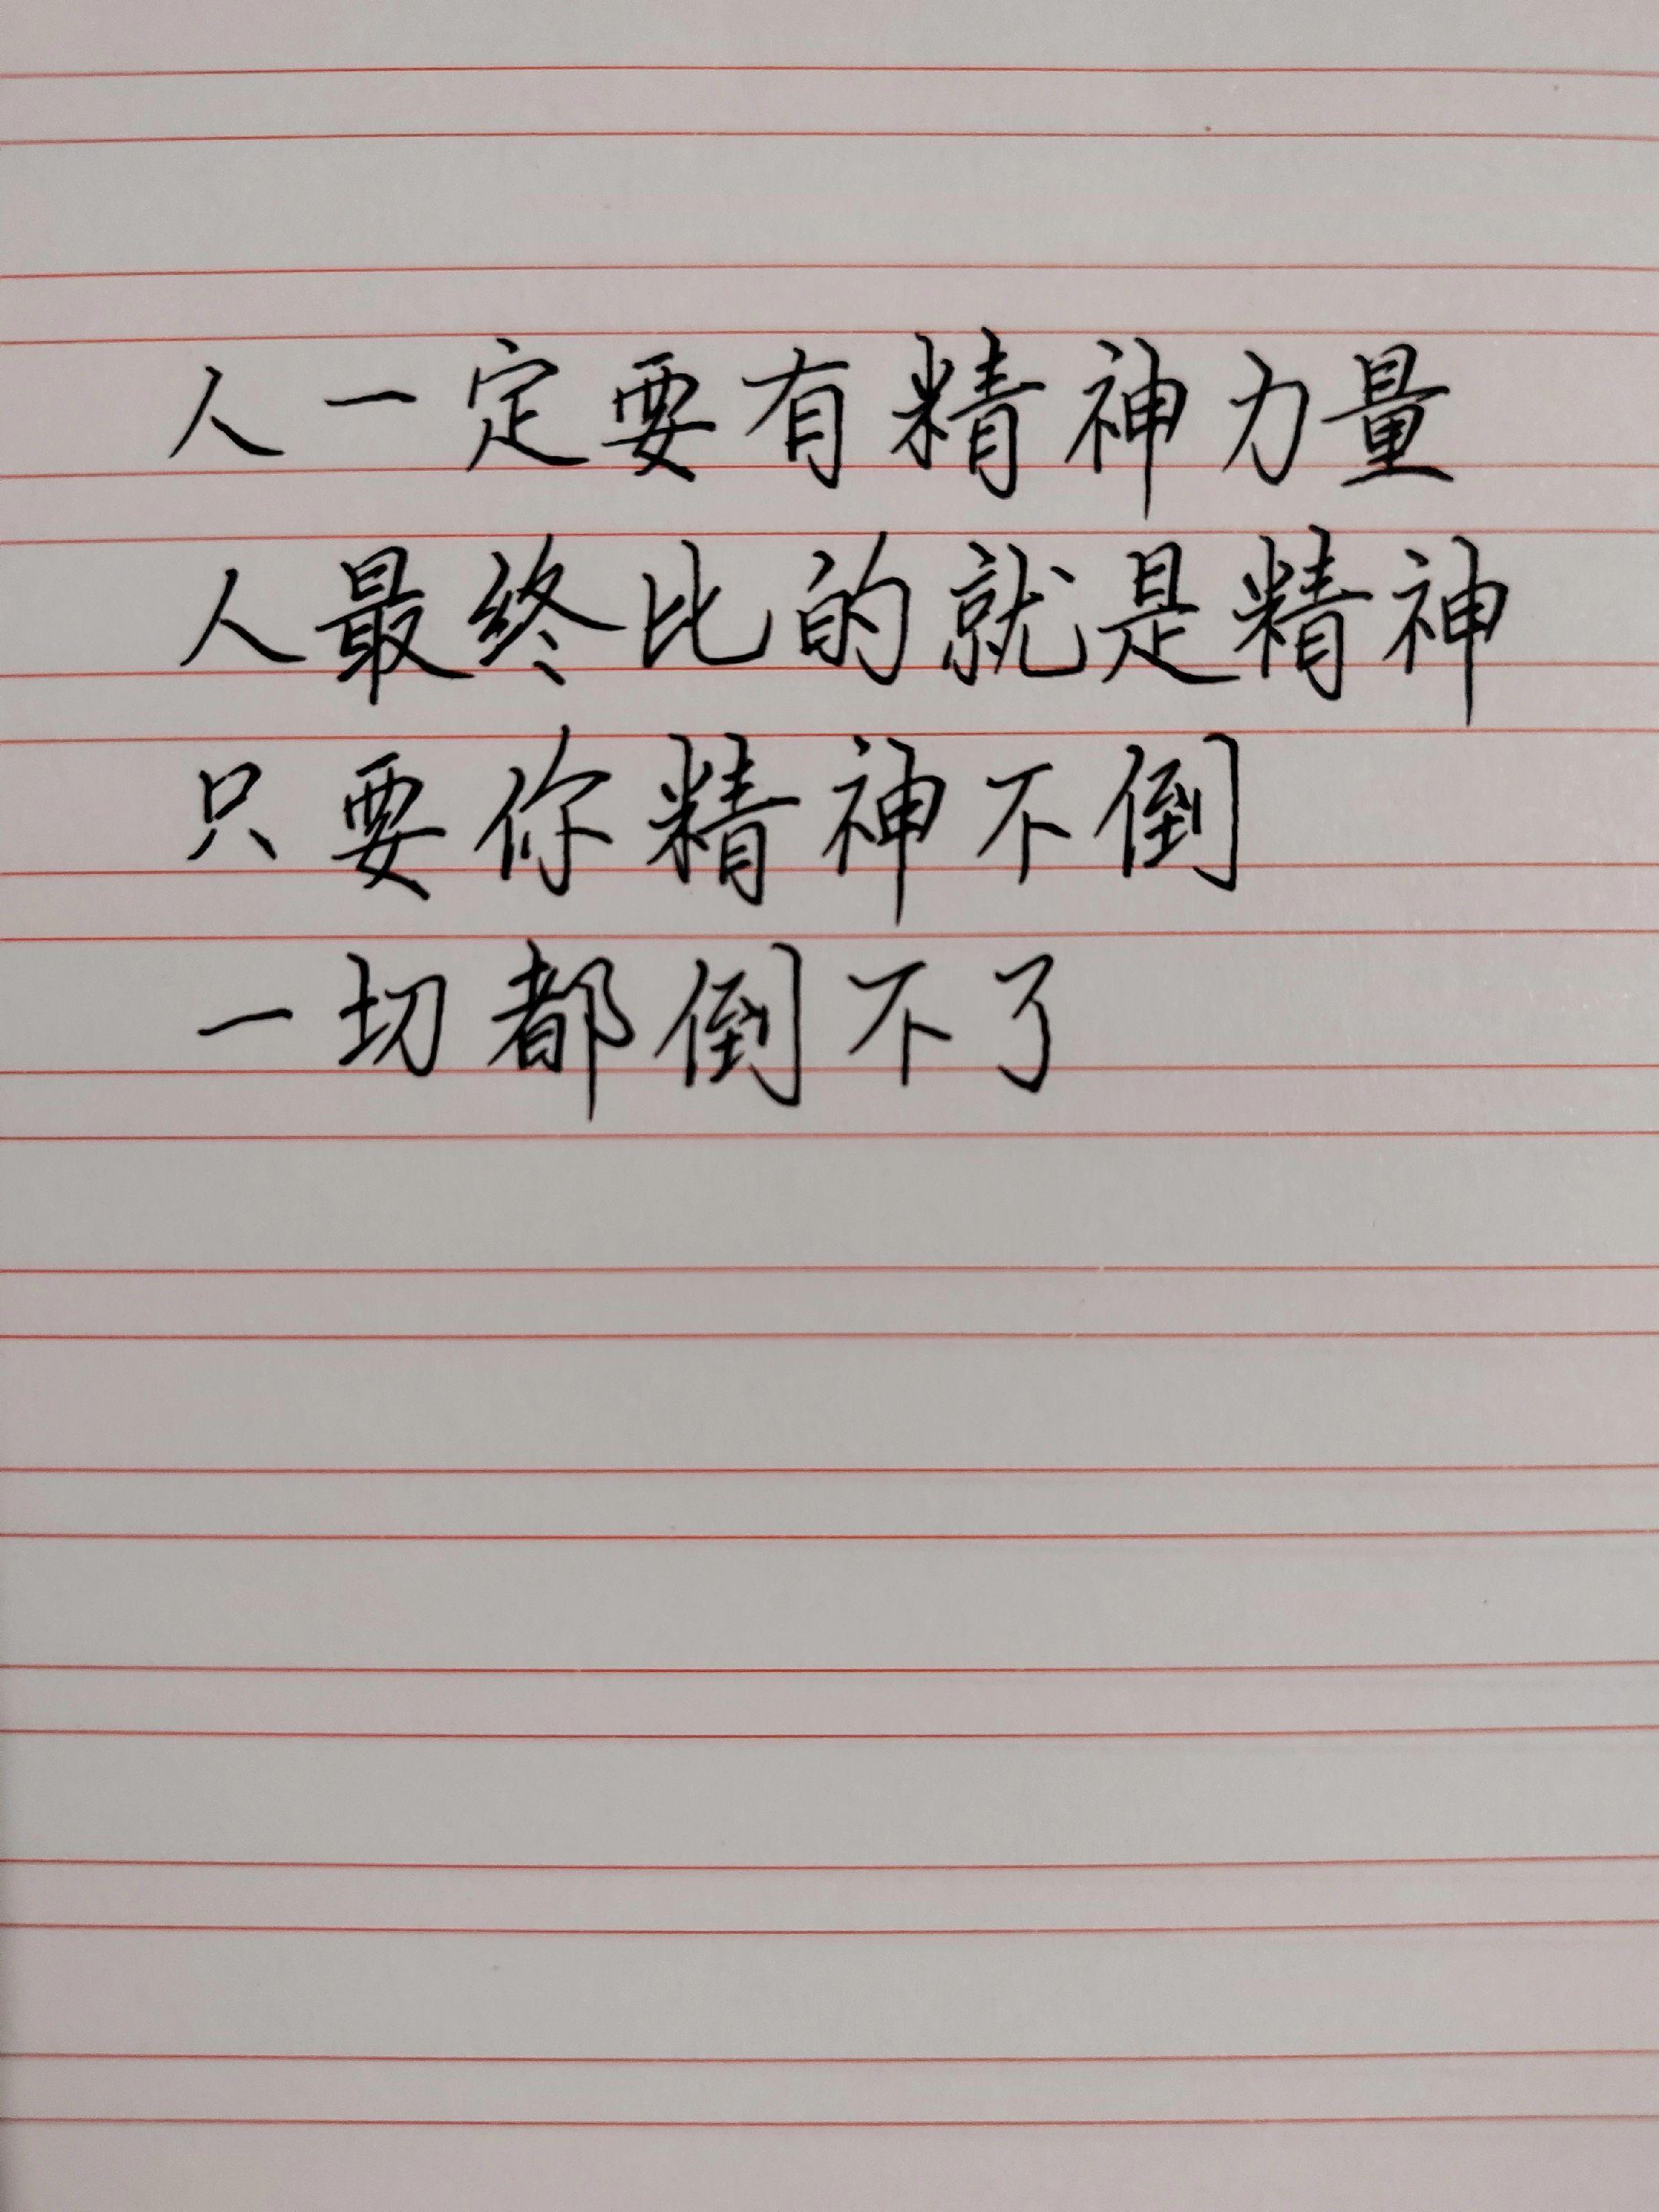 人一定要有精神力量
人最终比的就是精神
只要你精神不倒
一切都倒不了